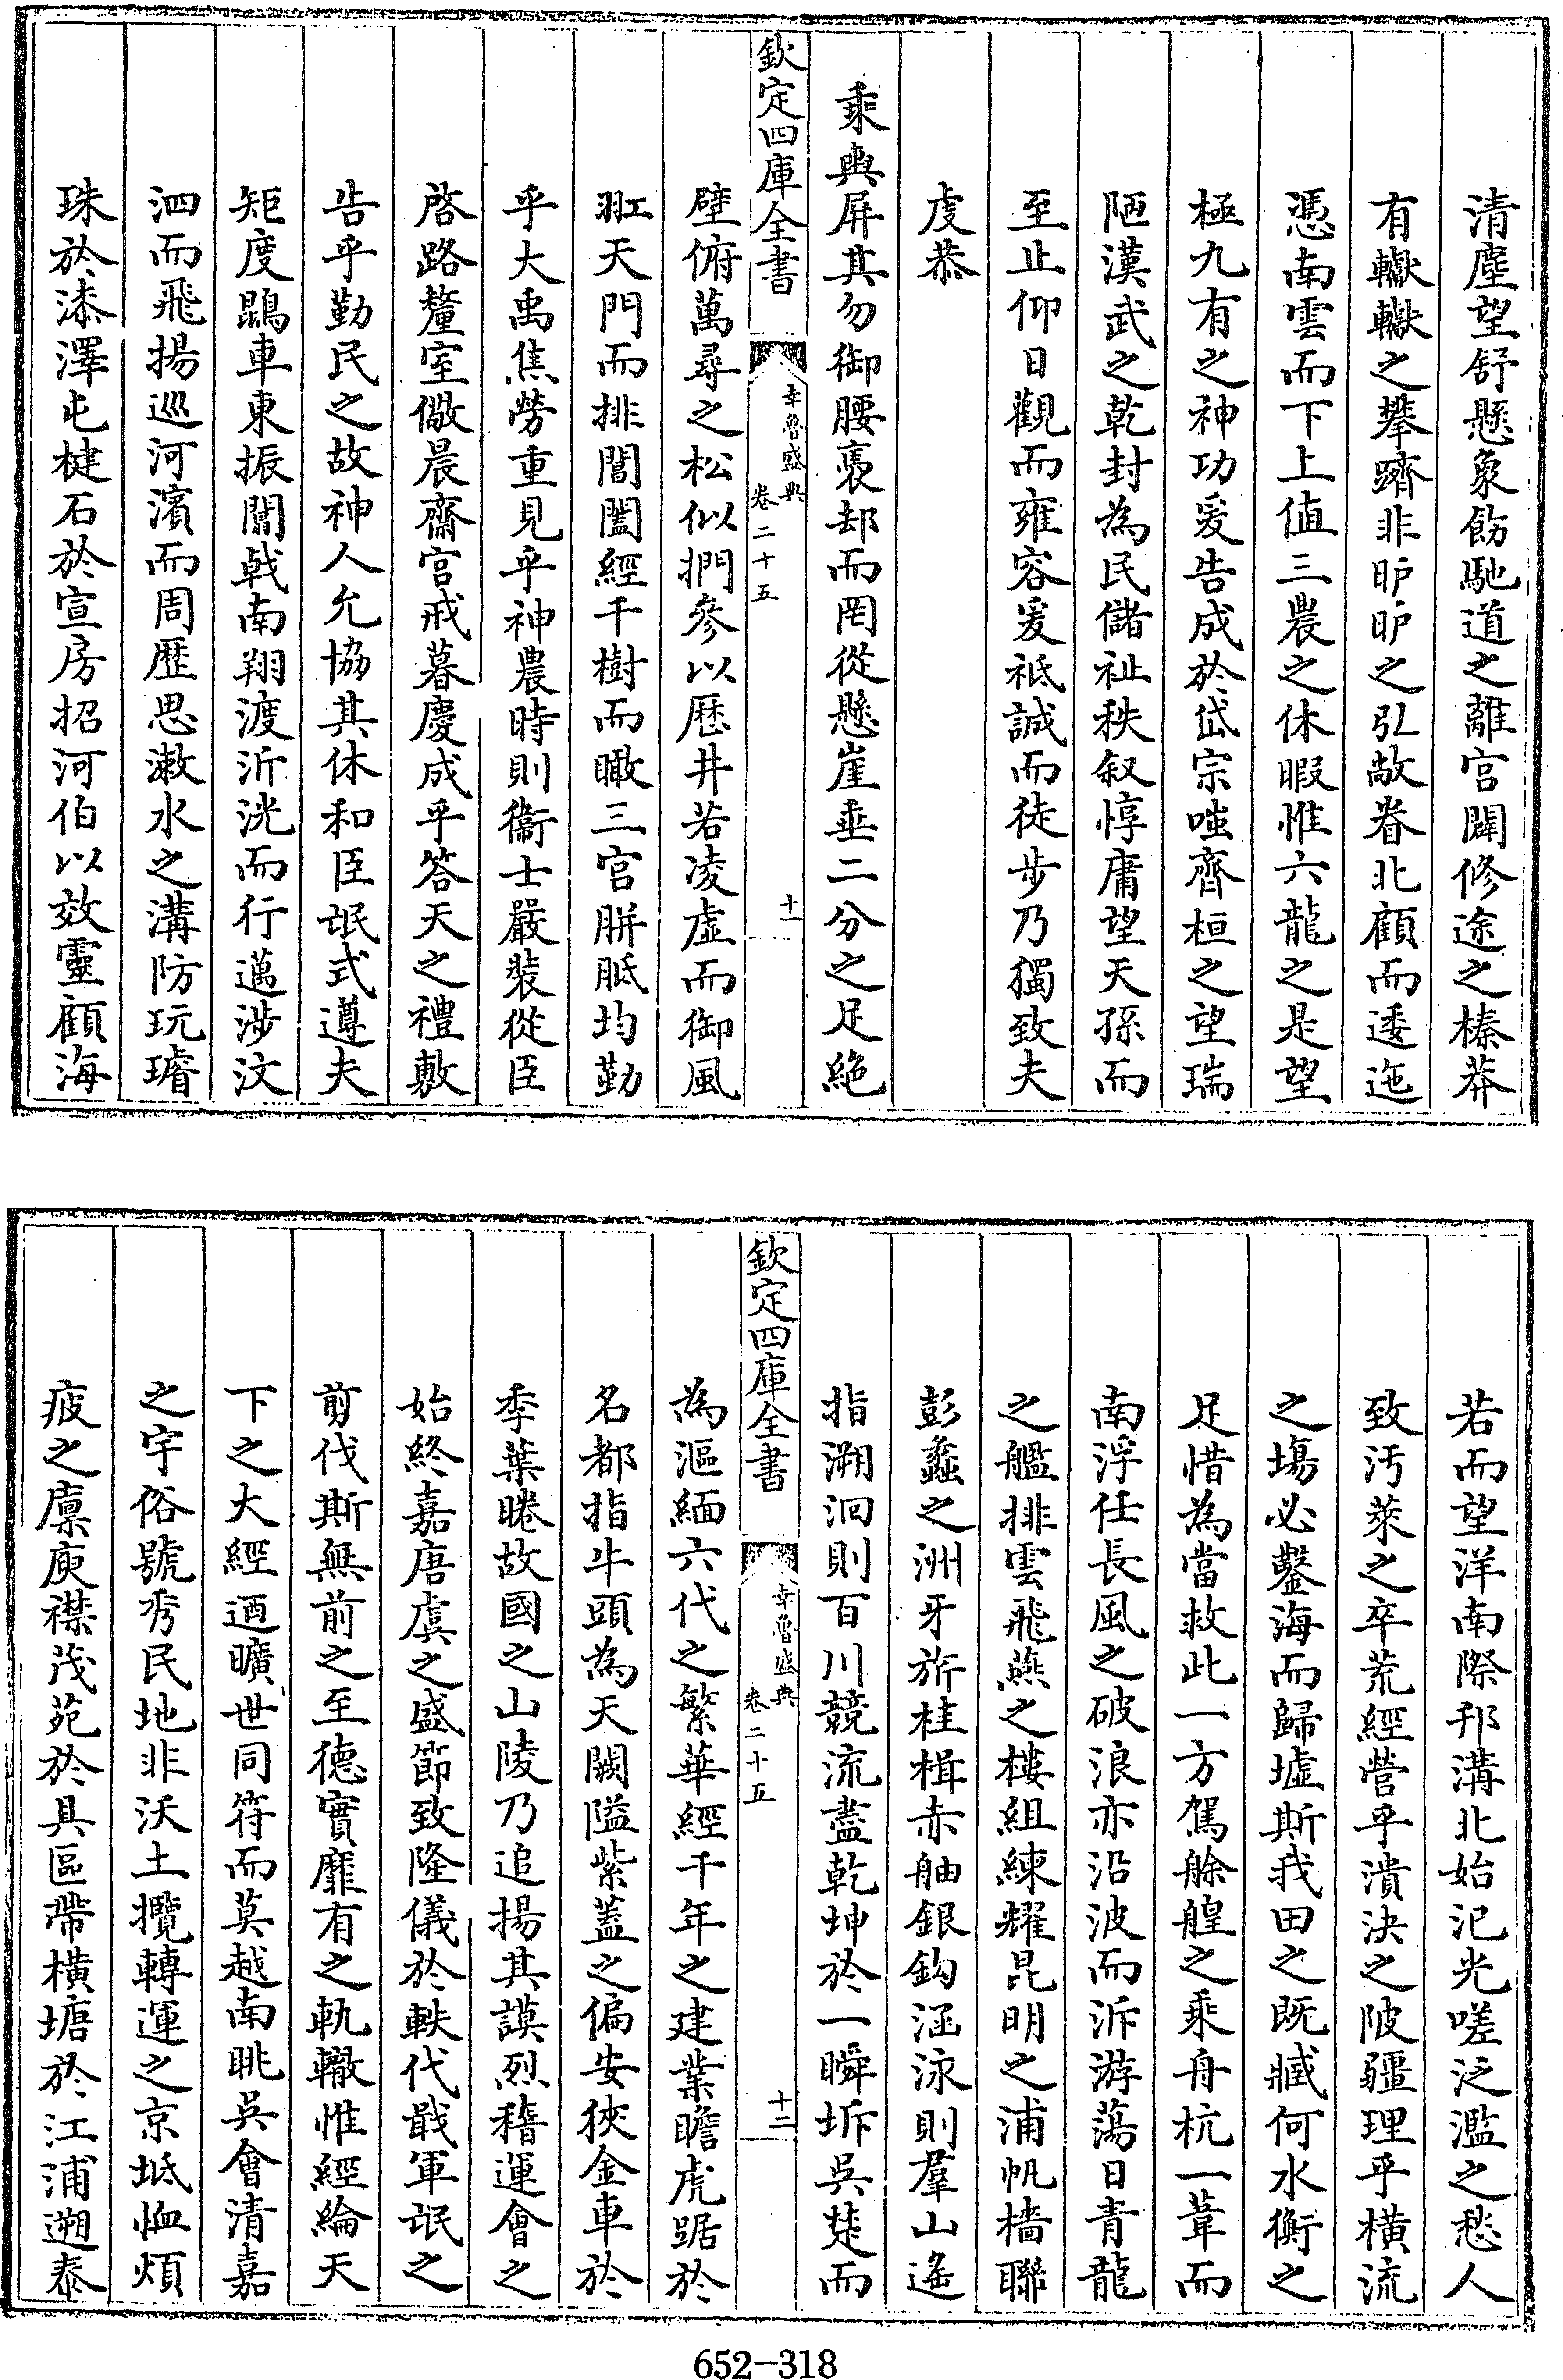 清塵望舒懸象飭馳道之離宫闢修途之榛莽
有轥轥之攀躋非昈昈之引敞眷北顧而逶迤
憑南雲而下上值三農之休暇惟六龍之是望
極九有之神功爰告成於岱宗嗤齊桓之望瑞
陋漢武之乾封為民儲祉秩叙惇庸望天孫而
至止仰日觀而雍容爰祗誠而徒步乃獨致夫
虔恭
乘輿屏其勿御腰褭却而罔從懸崖垂二分之足絶
欽定四庫全書
幸魯盛典
卷二十五
十一
壁俯萬尋之松似捫參以歷井若凌虚而御風
羾天門而排閶闔經千樹而瞰三宫胼胝均勤
乎大禹焦勞重見乎神農時則衞士嚴裝從臣
啓路釐室儆晨齋宫戒暮慶成乎答天之禮敷
告乎勤民之故神人允協其休和臣氓式遵夫
矩度鵾車東振闟戟南翔渡沂洸而行邁涉汶
泗而飛揚巡河濱而周歷思漱水之溝防玩璿
珠於漆澤屯楗石於宣房招河伯以效靈顧海
若而望洋南際邗溝北始氾光嗟泛濫之愁人
致汚萊之卒荒經營乎潰決之陂疆理乎橫流
之塲必鑿海而歸墟斯我田之既臧何水衡之
足惜為當救此一方駕艅艎之乘舟杭一葦而
南浮任長風之破浪亦沿波而泝游蕩日青龍
之艦排雲飛燕之樓組練耀昆明之浦帆檣聯
彭蠡之洲牙旂桂楫赤舳銀鈎涵泳則羣山遙
指溯洄則百川競流盡乾坤於一瞬坼吳楚而
欽定四庫全書
幸魯盛典
卷二十五
十二
為漚緬六代之繁華經千年之建業瞻虎踞於
名都指牛頭為天闕隘紫蓋之偏安狹金車於
季葉睠故國之山陵乃追揚其謨烈稽運會之
始終嘉唐虞之盛節致隆儀於軼代戢軍氓之
剪伐斯無前之至德實靡有之軌轍惟經綸天
下之大經迺曠世同符而莫越南眺吳會清嘉
之宇俗號秀民地非沃土攬轉運之京坻恤煩
疲之廩庾襟茂苑於具區帶橫塘於江浦遡泰
652-318